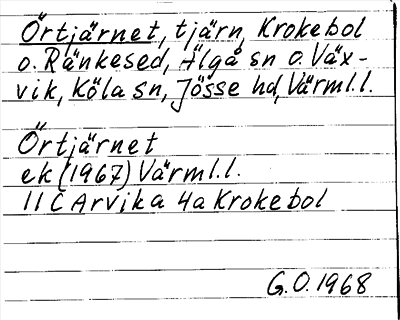 Örtjärnet, tjärn, Krokebol
o. Ränkesed, Älgå sn o. Väx-
vik, Köla sn, Jösse hd, Värml.l.
Örtjärnet
ek (1967) Värml.l.
11 C Arvika 4a Krokebol
G.O. 1968